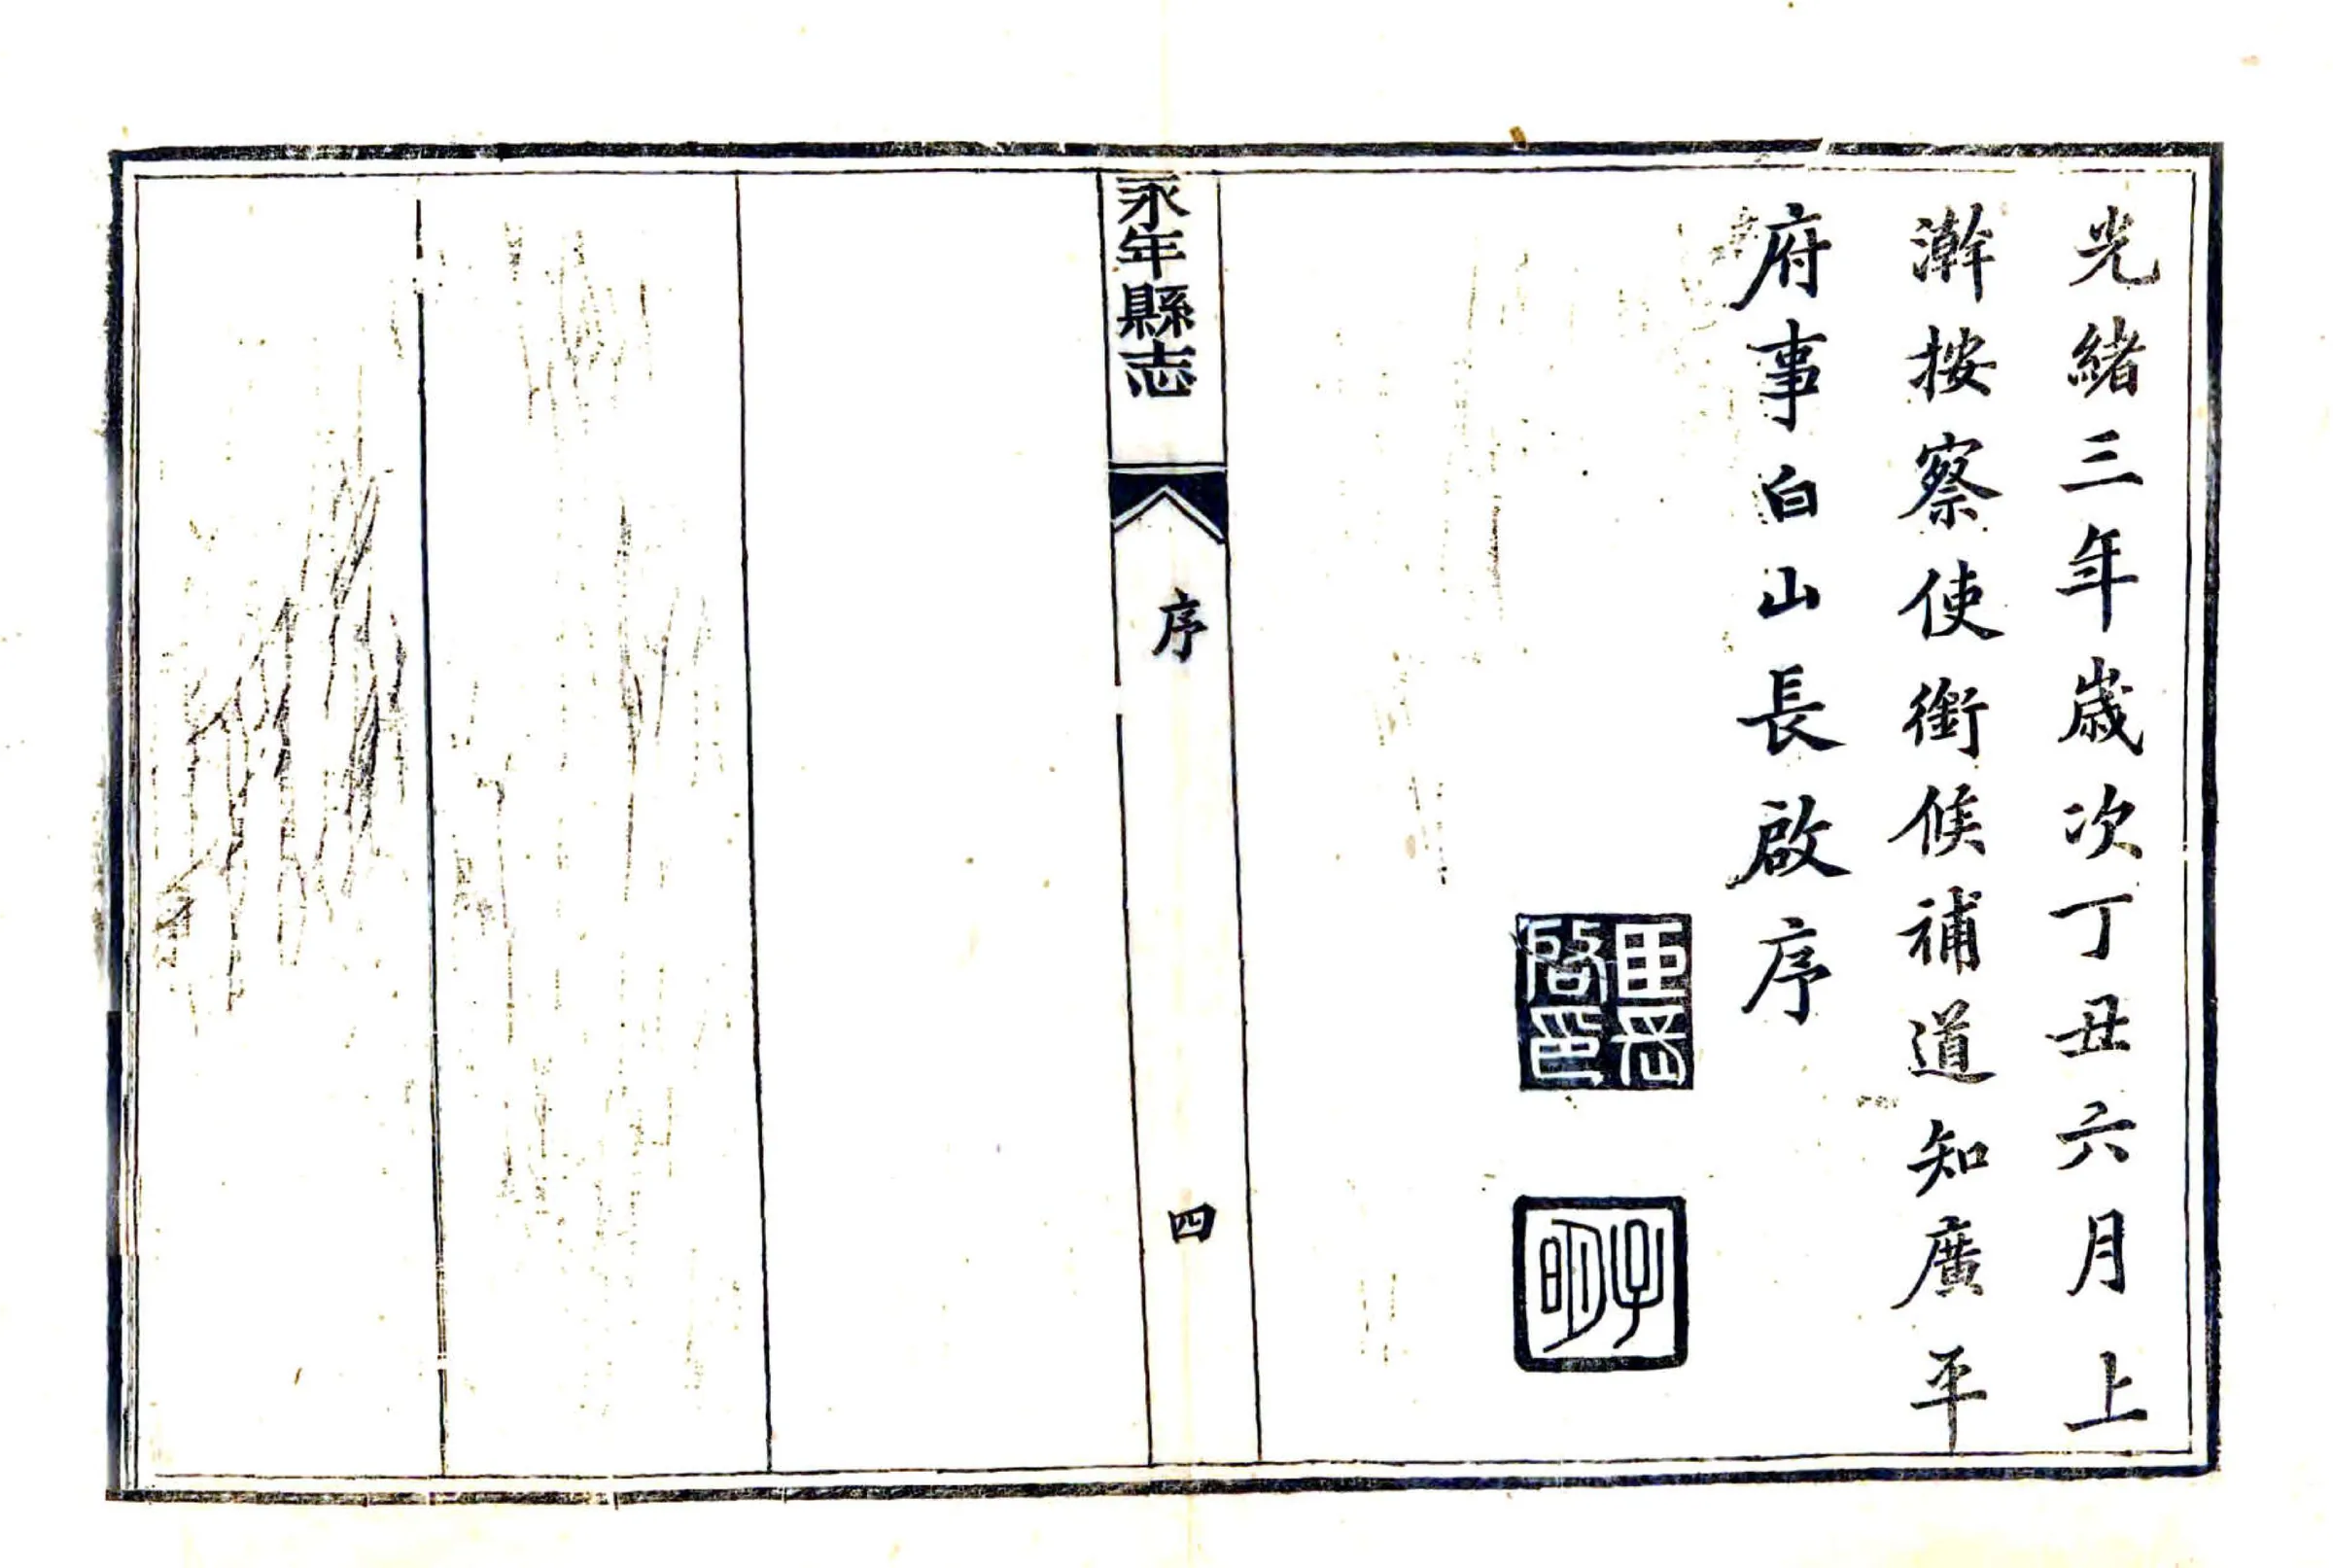 光緒三年歲次丁丑六月上
澣按察使銜候補道知廣平
府事白山長啟序
臣長啓印
子明
永年縣志
序
四